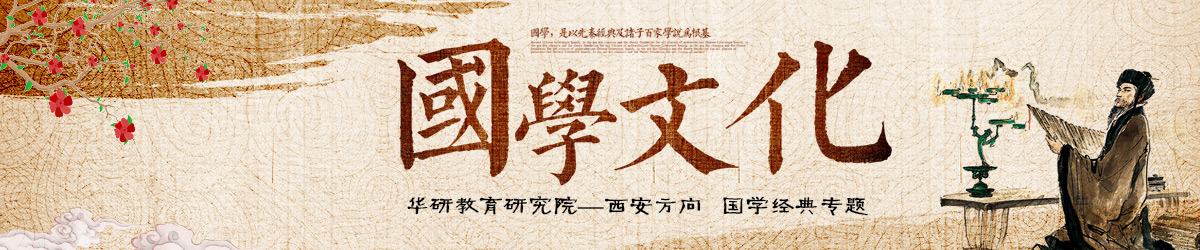 國學，是以先秦經典及諸子百家學說爲根基
國學文化
华研教育研究院—西安方向 国学经典专题